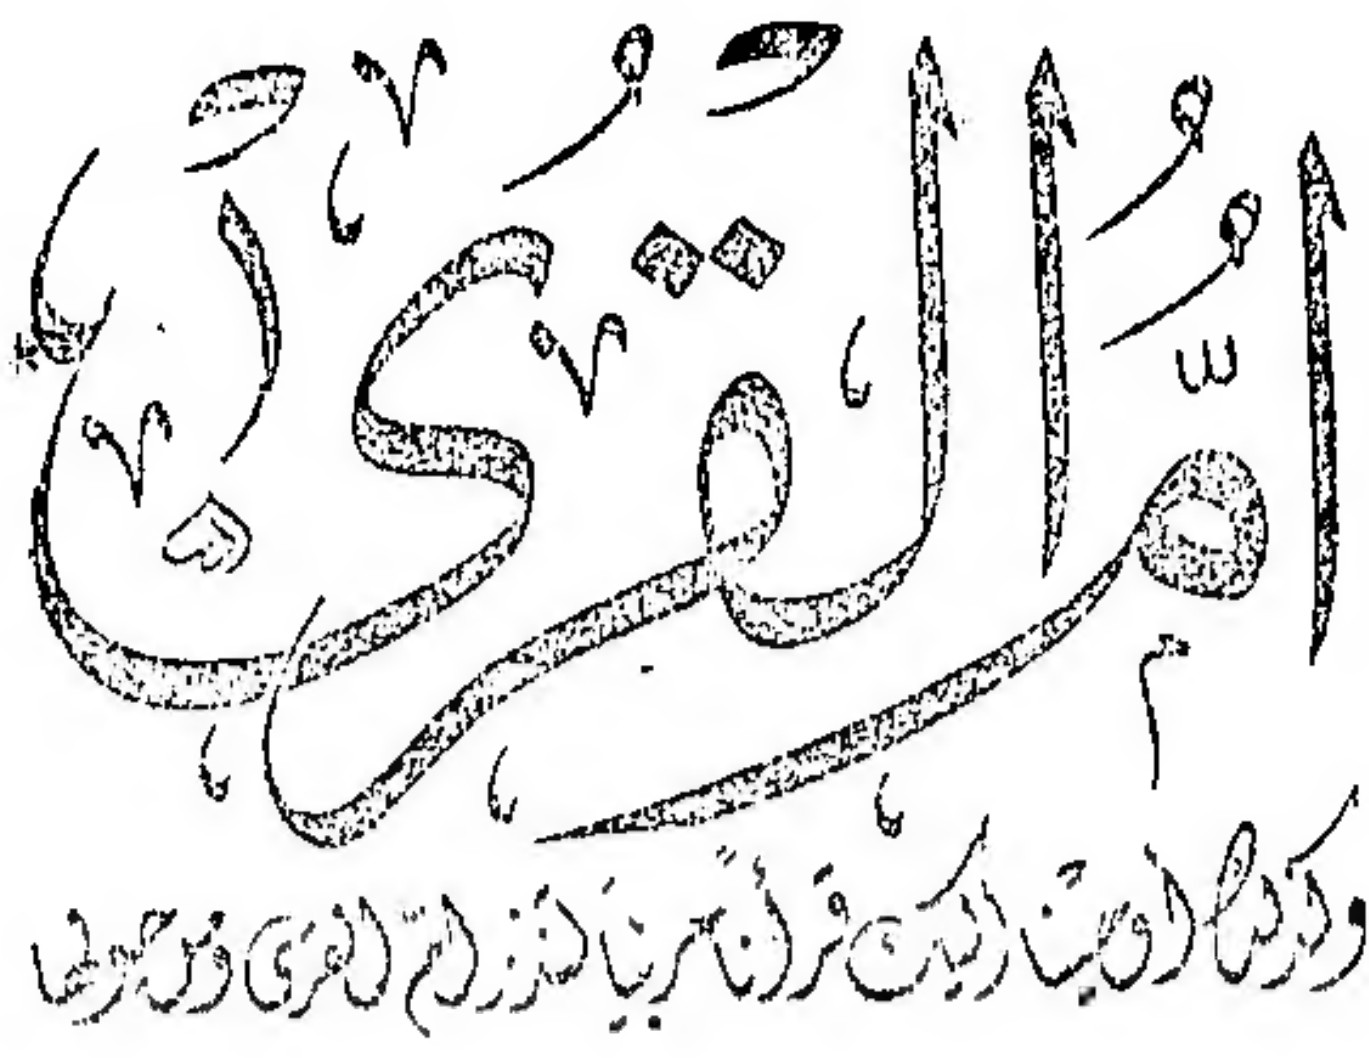 اُمُّ الْقُرَى
وكذلك أوحينا إليك قرآناً عربياً لتنذر أم القرى ومن حولها